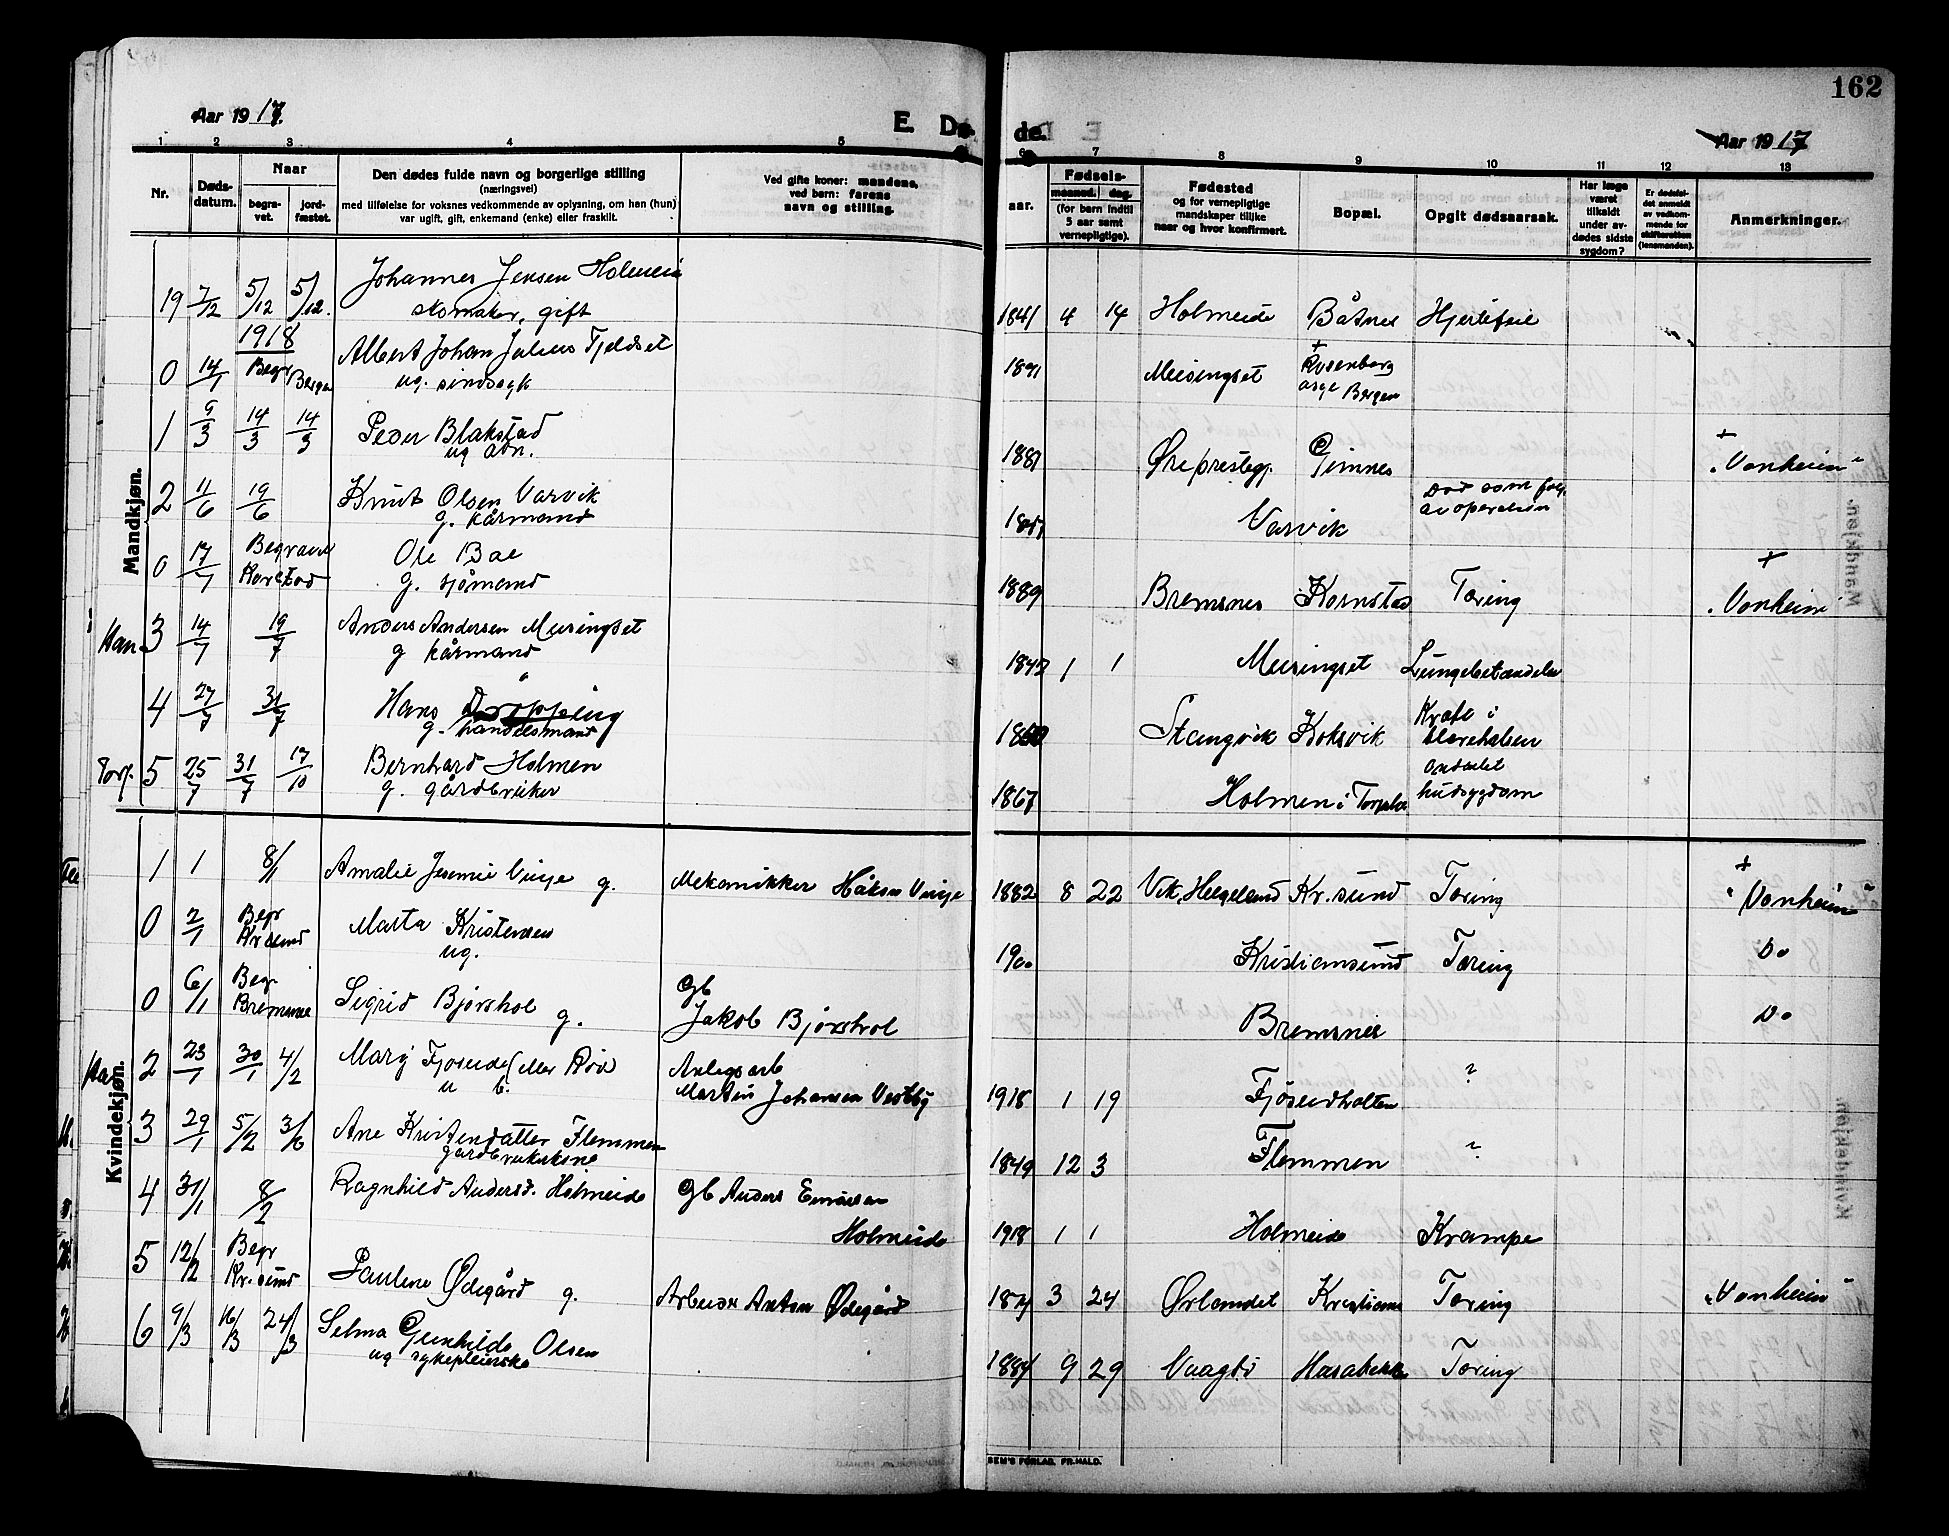 162
Aar 1917.
E. Dø
de.
Aar 1917
1 2 3 4 5
6 7 8 9 10 11 12 13
Nr.
Døds-
datum.
Naar
begra-
vet.
jord-
fæstet.
Den dødes fulde navn og borgerlige stilling
(næringsvei)
med tilføielse for voksnes vedkommende av oplysning, om han (hun)
var ugift, gift, enkemand (enke) eller fraskilt.
Ved gifte koner: mandens,
ved børn: farens
navn og stilling.
aar.
Fødsels-
maaned. dag.
(for børn indtil
5 aar samt
vernepligtige).
Fødested
og for vernepligtige
mandskaper tillike
naar og hvor konfirmert.
Bopæl.
Opgit dødsaarsak.
Har læge
været
tilkaldt
under av-
dødes sidste
sygdom?
Er dødsfal-
det anmeldt
av vedkom-
mende for
skifteretten
(lensmanden).
Anmerkninger.
Mandkjøn.
19 7/12 5/12 5/12. Johannes Jensen Holmeide
skomaker, gift
1841 4 14 Holmeide Båtnes Hjertefeil
1918
0 14/1 Begr Bergen Albert Johan Julius Fjeldset
ug. sindssyk
1891 Meisingset + Rosenberg
asyl Bergen
1 9/3 14/3 14/3 Peder Blakstad
ug adn.
1881 Øre prestegj. Gimnes + "Vonheim"
2 11/6 19/6 Knut Olsen Varvik
g. kårmand
Varvik Død som følge
av operation
0 17/7 Begravet
Kornstad Ole Bae
g. sjømand
1889 Bremsnes Kornstad Tæring + "Vonheim"
Han 3 14/7 19/7 Anders Andersen Meisingset
g kårmand
1842 1 1 Meisingset Lungebetændelse
4 27/7 31/7 Hans Drøpping
g. handelsmand
Stangvik Koksvik Kræft i
blærehalsen
Torj. 5 25/7 31/7 17/10 Bernhard Holmen
g. gårdbruker
1867 Holmen i Torjulv ondartet
hudsygdom
Kvindekjøn.
1 1 8/1 Amalie Jesmie Vinje g. Mekanikker Håkon Vinje
1882 8 22 Vik, Helgeland Kr.sund Tæring + "Vonheim"
0 2/1 Begr
Kr.sund Marta Kristensen
ug.
1900 Kristiansund Tæring Do
0 6/1 Begr
Bremsnes Sigrid Bjørshol g. Gb
Jakob Bjørshol
Bremsnes Do
2 23/1 30/1 4/2 Mary Fjøseide (eller Rød
u b. Anlegsarb
Martin Johansen Vestby
1918 1 19 Fjøseidholten ?
3 29/1 5/2 3/6 Ane Kristendatter Flemmen
gårdbrukerkone
1849 12 3 Flemmen ?
4 31/1 8/2 Ragnhild Andersd. Holmeide Gb Anders Einarsen
Holmeide
1918 1 1 Holmeide Krampe
5 12/2 Begr
Kr.sund Pauline Ødegård g. Arbeider Anton Ødegård
3 24 Ørlandet Kristians Tæring "Vonheim"
6 9/3 16/3 24/3 Selma Gunhilde Olsen
ug sykepleierske
1884 9 29 Vaagsø Hasabekk Tæring
SEM'S FORLAG. FR.HALD.